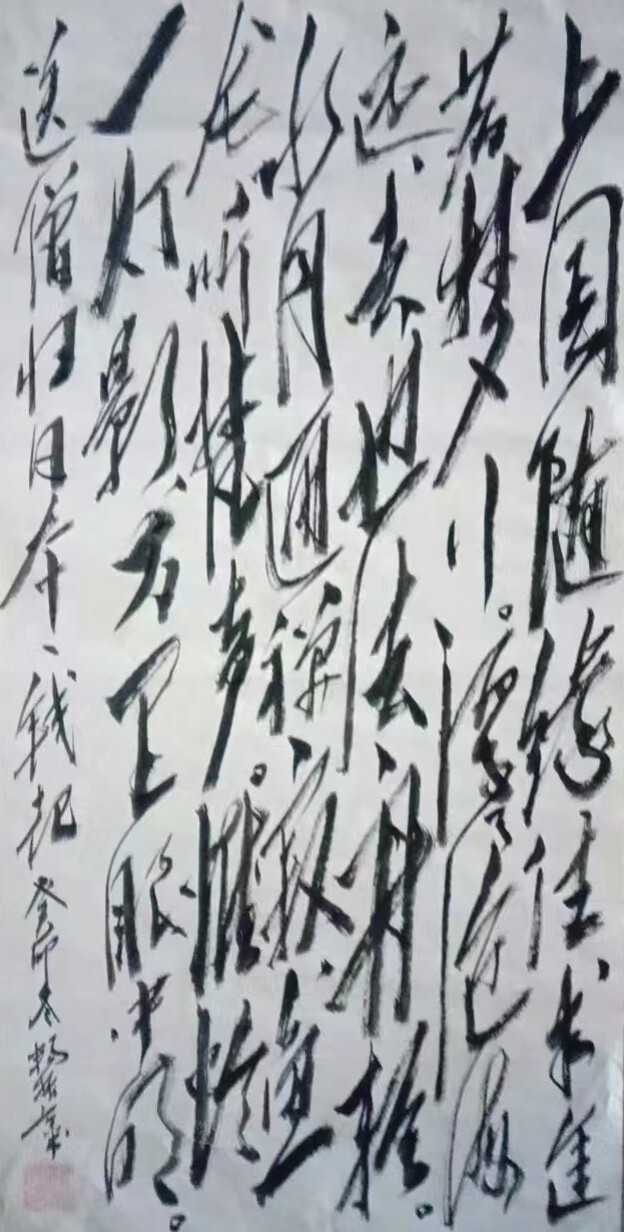 上国随缘住、来途
若梦行。浮天沧海
远、去世法舟轻。
水月通禅寂、鱼
龙听梵声。惟怜
一灯影、万里眼中明。
送僧归日本、钱起 癸卯冬 杨